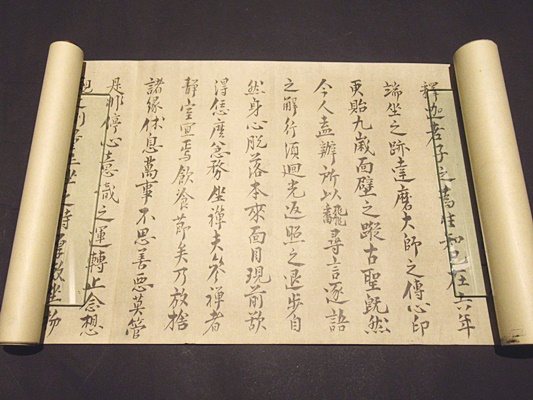 釋迦老子之為生知已在六年
端坐之跡達磨大師之傳心印
更貽九歳面壁之蹤古聖既然
今人盍辨所以飜尋言逐語
之解行須迴光返照之退步自
然身心脫落本來面目現前欲
得恁麼急務坐禪夫參禪者
靜室宜焉飲飡節矣乃放捨
諸緣休息萬事不思善惡莫管
是非停心意識之運轉止念想
坐之時厚敷坐物